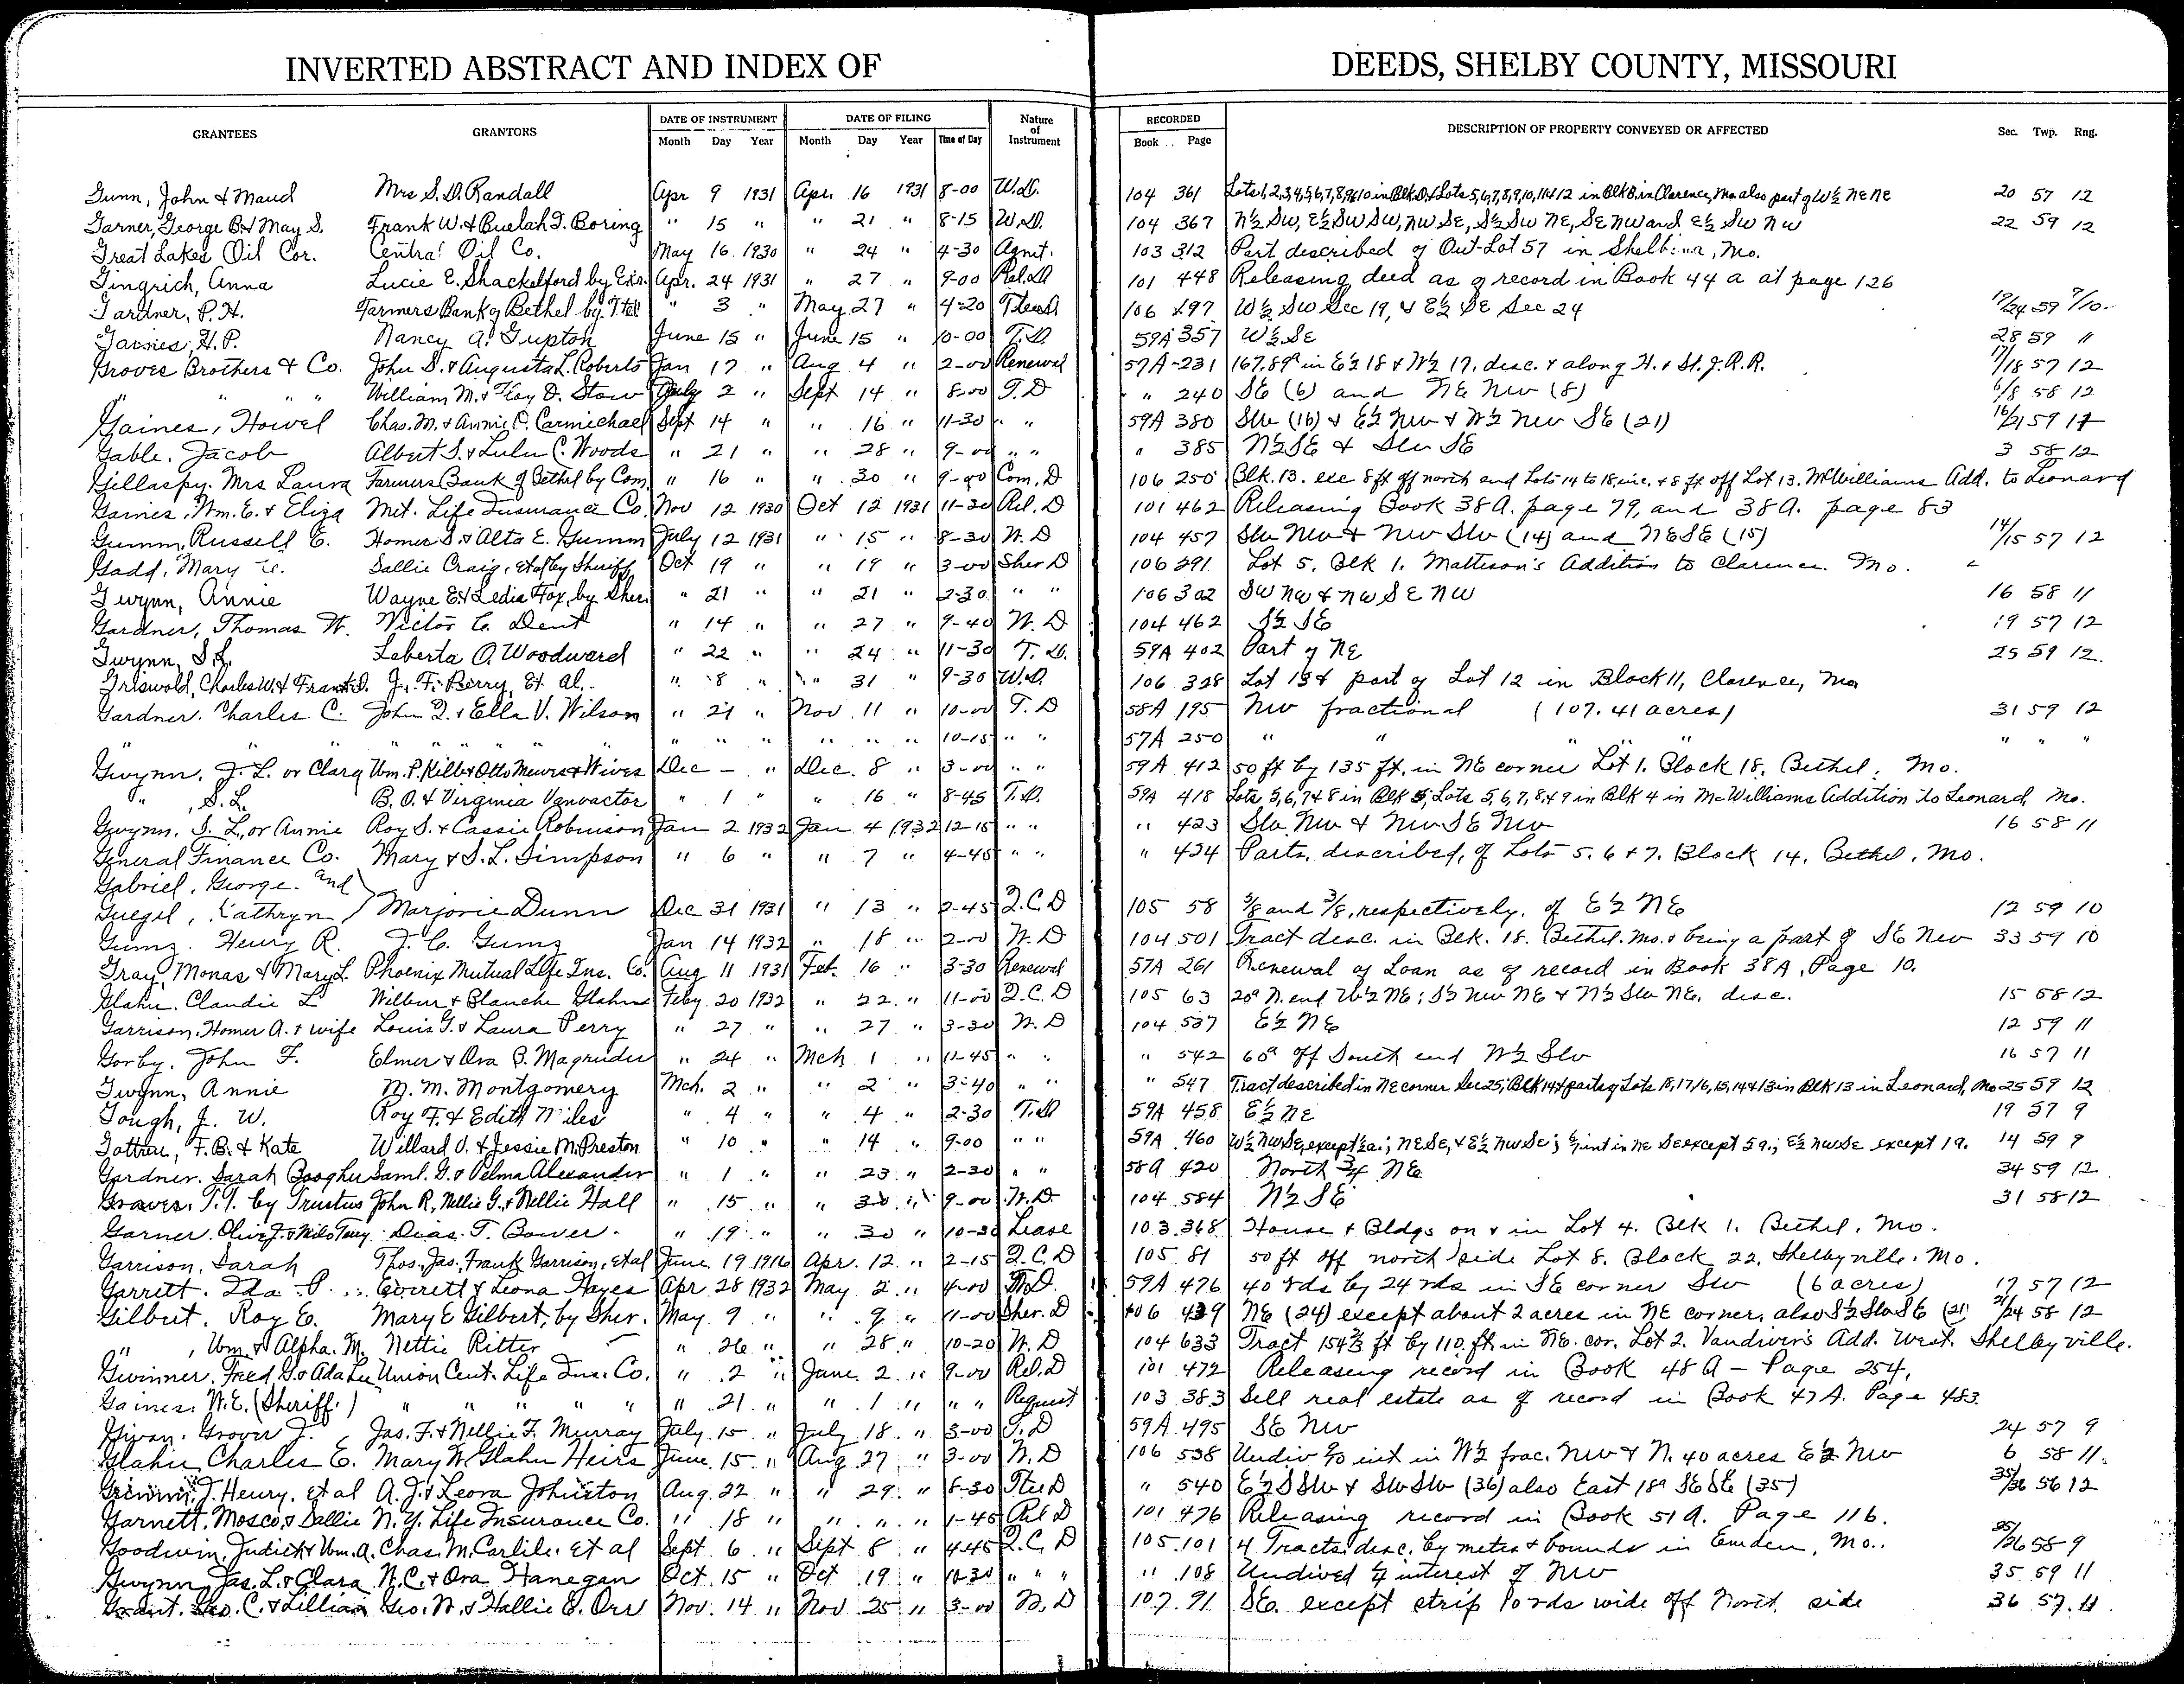 INVERTED ABSTRACT AND INDEX OF DEEDS, SHELBY COUNTY, MISSOURI
GRANTEES GRANTORS DATE OF INSTRUMENT DATE OF FILING Nature of Instrument RECORDED DESCRIPTION OF PROPERTY CONVEYED OR AFFECTED Sec. Twp. Rng.
Month Day Year Month Day Year Time of Day Book Page
Gunn, John & Maud Mrs S.D. Randall Apr 9 1931 Apr. 16 1931 8-00 W.D. 104 361 Lots 1,2,3,4,5,6,7,8,9&10 in Blk D & Lots 5,6,7,8,9,10,11&12 in Blk B in Clarence, Mo also part of W½ NE NE 20 57 12
Garner, George B & May S. Frank W. & Buelah I. Boring " 15 " " 21 " 8-15 W.D. 104 367 N½ SW, E½ SW SW, NW SE, S½ SW NE, SE NW and E½ SW NW 22 59 12
Great Lakes Oil Cor. Central Oil Co. May 16 1930 " 24 " 4-30 Agmt. 103 312 Part described of Out-Lot 57 in Shelbina, Mo.
Gingrich, Anna Lucie E. Shackelford by Exr. Apr. 24 1931 " 27 " 9-00 Rel.D 101 448 Releasing deed as of record in Book 44 a at page 126
Gardner, P.H. Farmers Bank of Bethel by " 3 " May 27 " 4-20 106 197 W½ SW Sec 19, & E½ SE Sec 24 19/24 59 9/10
Gaines, H.P. Nancy A. Gupton June 15 " June 15 " 10-00 T.D. 59A 357 W½ SE 28 59 11
Groves Brothers & Co. John S. & Augusta L. Roberts Jan 17 " Aug 4 " 2-00 Renewal 57A-231 167.89ª in E½ 18 & W½ 17, desc. & along H. & St. J. R.R. 17/18 57 12
" " " " William M. & Floy D. Stow July 2 " Sept 14 " 8-00 T.D " 240 SE (6) and NE NW (8) 6/8 58 12
Gaines, Howel Chas. M. & Annie C. Carmichael Sept 14 " " 16 " 11-30 " " 59A 380 SW (16) & E½ NW & W½ NW SE (21) 16/21 59 12
Gable, Jacob Albert S. & Lulu C. Woods " 21 " " 28 " 9-00 " " " 385 N½ SE & SW SE 3 58 12
Gillaspy, Mrs Laura Farmers Bank of Bethel by Com. " 16 " " 30 " 9-00 Com. D 106 250 Blk. 13. exc 8 ft off north end Lots 14 to 18 inc. & 8 ft off Lot 13. McWilliams Add. to Leonard
Gaines, Wm. E. & Eliza Mut. Life Insurance Co. Nov 12 1930 Oct 12 1931 11-30 Rel. D 101 462 Releasing Book 38A. page 79, and 38A. page 83
Gumm, Russell E. Homer S. & Alta E. Gumm July 12 1931 " 15 " 8-30 W.D 104 457 SW NW & NW SW (14) and NE SE (15) 14/15 57 12
Gadd, Mary Sallie Craig, et al by Sheriff Oct 19 " " 19 " 3-00 Sher D 106 291 Lot 5. Blk 1. Mattison's Addition to Clarence. Mo.
Gwynn, Annie Wayne E. & Ledia Fox, by Sher. " 21 " " 21 " 2-30 " " 106 302 SW NW & NW SE NW 16 58 11
Gardner, Thomas W. Victor C. Dent " 14 " " 27 " 9-40 W.D 104 462 S½ SE 19 57 12
Gwynn, S.L. Laberta O. Woodward " 22 " " 24 " 11-30 T.D. 59A 402 Part of NE 25 59 12.
Griswold, Charles W. & J. F. Berry, Et al. " 8 " " 31 " 9-30 W.D. 106 328 Lot 13 & part of Lot 12 in Block 11, Clarence, Mo
Gardner, Charles C. John Q. & Ella V. Wilson " 21 " Nov 11 " 10-00 T.D 58A 195 NW fractional (107.41 acres) 31 59 12
" " " " " " " " " " " " " 10-15 " " 57A 250 " " " " " " "
Gwynn, J. L. or Clara Wm. P. Kilb & Otto Mewes & Wives Dec - " Dec. 8 " 3-00 " " 59A 412 50 ft by 135 ft. in NE corner Lot 1. Block 18. Bethel, Mo.
" , S.L. B.O. & Virginia Vanvactor " 1 " " 16 " 8-45 T.D. 59A 418 Lots 5,6,7&8 in Blk 5, Lots 5,6,7,8,&9 in Blk 4 in McWilliams Addition to Leonard, Mo.
Gwynn, S. L., or Annie Roy S. & Cassie Robinson Jan 2 1932 Jan 4 1932 12-15 " " " 423 SW NW & NW SE NW 16 58 11
General Finance Co. Mary & S. L. Simpson " 6 " " 7 " 4-45 " " " 424 Parts, described, of Lots 5. 6 & 7. Block 14, Bethel, Mo.
Gabriel, George and
Guegel, Kathryn Marjorie Dunn Dec 31 1931 " 13 " 2-45 Q.C.D 105 58 ⅜ and ⅜, respectively, of E½ NE 12 59 10
Gumz, Henry R. J. C. Gumz Jan 14 1932 " 18 " 2-00 W.D 104 501 Tract desc. in Blk. 18. Bethel. Mo. & being a part of SE NW 33 59 10
Gray, Monas & Mary L. Phoenix Mutual Life Ins. Co. Aug 11 1931 Feb. 16 " 3-30 Renewal 57A 261 Renewal of Loan as of record in Book 38A, Page 10.
Glahn, Claudie L Wilbur & Blanche Glahn Feby 20 1932 " 22 " 11-00 Q.C.D 105 63 20ª N. end W½ NE; S½ NW NE & N½ SW NE, desc. 15 58 12
Garrison, Homer A. & wife Louis G. & Laura Perry " 27 " " 27 " 3-30 W.D 104 537 E½ NE 12 59 11
Gorby, John F. Elmer & Ora B. Magruder " 24 " Mch 1 " 11-45 " " " 542 60ª off South end W½ SW 16 57 11
Gwynn, Annie M. M. Montgomery Mch. 2 " " 2 " 3-40 " " " 547 Tract described in NE corner Sec 25; Blk 14 & parts of Lots 18, 17, 16, 15, 14 & 13 in Blk 13 in Leonard, Mo 25 59 12
Gough, J. W. Roy F. & Edith Wiles " 4 " " 4 " 2-30 T.D 59A 458 E½ NE 19 57 9
Gottrell, F.B. & Kate Willard O. & Jessie M. Preston " 10 " " 14 " 9-00 " " 59A 460 W½ NW SE, except ½a.; NE SE, & E½ NW SE; int in NE SE except 5a.; E½ NW SE except 1a. 14 59 9
Gardner, Sarah Boogher Saml. G. & Velma Alexander " 1 " " 23 " 2-30 " " 58A 420 North ¾ NE 34 59 12
Graves, T.T. by Trustees John R, Nellie G., & Nellie Hall " 15 " " 30 " 9-00 W.D. 104 584 N½ SE 31 58 12
Garner, Olive J. & Milo Tony Dias. T. Bower " 19 " " 30 " 10-30 Lease 103.368 House & Bldgs on & in Lot 4. Blk 1. Bethel, Mo.
Garrison, Sarah Thos., Jas., Frank Garrison, et al June 19 1916 Apr. 12 " 2-15 Q.C.D 105 81 50 ft off north side Lot 8. Block 22. Shelbyville, Mo.
Garrett, Ida P. Everett & Leona Hayes Apr 28 1932 May 2 " 4-00 T.D. 59A 476 40 rds by 24 rds in SE corner SW (6 acres) 17 57 12
Gilbert, Roy E. Mary E Gilbert, by Sher. May 9 " " 9 " 11-00 Sher. D 106 439 NE (24) except about 2 acres in NE corner, also S½ SW SE (21) 21/24 58 12
" , Wm. & Alpha. M. Nettie Ritter " 26 " " 28 " 10-20 W.D 104 633 Tract 154⅔ ft by 110 ft. in NE. cor. Lot 2. Vandiver's Add. West. Shelbyville.
Gwinner, Fred G. & Ada Lee Union Cent. Life Ins. Co. " 2 " June 2 " 9-00 Rel.D 101 472 Releasing record in Book 48 A - Page 254.
Gaines, W.E. (Sheriff) " " " " " " 21 " " 1 " " " Request 103 383 Sell real estate as of record in Book 47A. Page 483.
Givan, Grover J. Jas. F. & Nellie F. Murray July 15 " July 18 " 3-00 T.D 59A 495 SE NW 24 57 9
Glahn, Charles E. Mary W. Glahn Heirs June 15 " Aug 27 " 3-00 W.D 106 538 Undiv int in W½ frac. NW & N. 40 acres E½ NW 6 58 11.
J. Henry, et al A. J. & Leora Johnston Aug. 22 " " 29 " 8-30 Tte D " 540 E½ S SW & SW SW (36) also East 18ª SE SE (35) 35/36 56 12
Garnett, Mosco & Sallie N.Y. Life Insurance Co. " 18 " " " " 1-45 Rel D 101 476 Releasing record in Book 51 A. Page 116.
Goodwin, Judick & Wm. A. Chas. M. Carlile, et al Sept. 6 " Sept 8 " 4-45 Q.C.D 105.101 4 Tracts desc. by metes & bounds in Emden, Mo. 25/26 58 9
Gwynn, Jas. L. & Clara N.C. & Ora Hanegan Oct. 15 " Oct 19 " 10-30 " " " " 108 Undived ¼ interest of NW 35 59 11
Grant, Geo. C. & Lillian Geo. W. & Hallie E. Orr Nov. 14 " Nov 25 " 3-00 W.D 107.91 SE. except strip 10 rds wide off North side 36 57 11